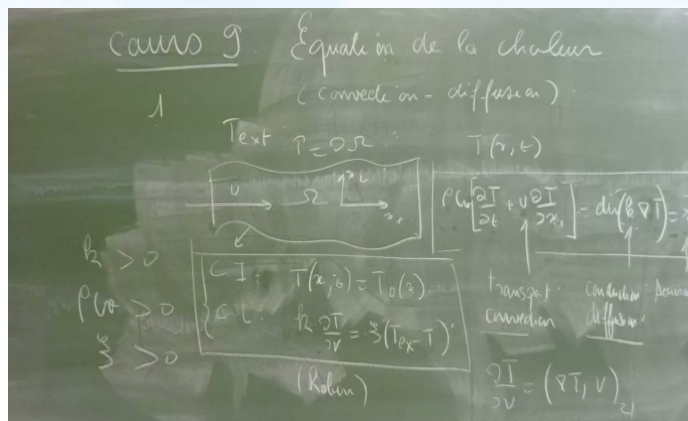 cours 9. Equation de la chaleur
1
(convection - diffusion).
Text Γ = ∂Ω
T(x, t)
U Ω x₂
x₁
ρCv[∂T/∂t + U ∂T/∂x₁] - div(k ∇T) =
k > 0
ρCv > 0
ξ > 0
CI: T(x, 0) = T₀(x).
CL: k ∂T/∂ν = ξ(Tex - T)
(Robin)
transport conduction source
convection diffusion
∂T/∂ν = (∇T, ν)